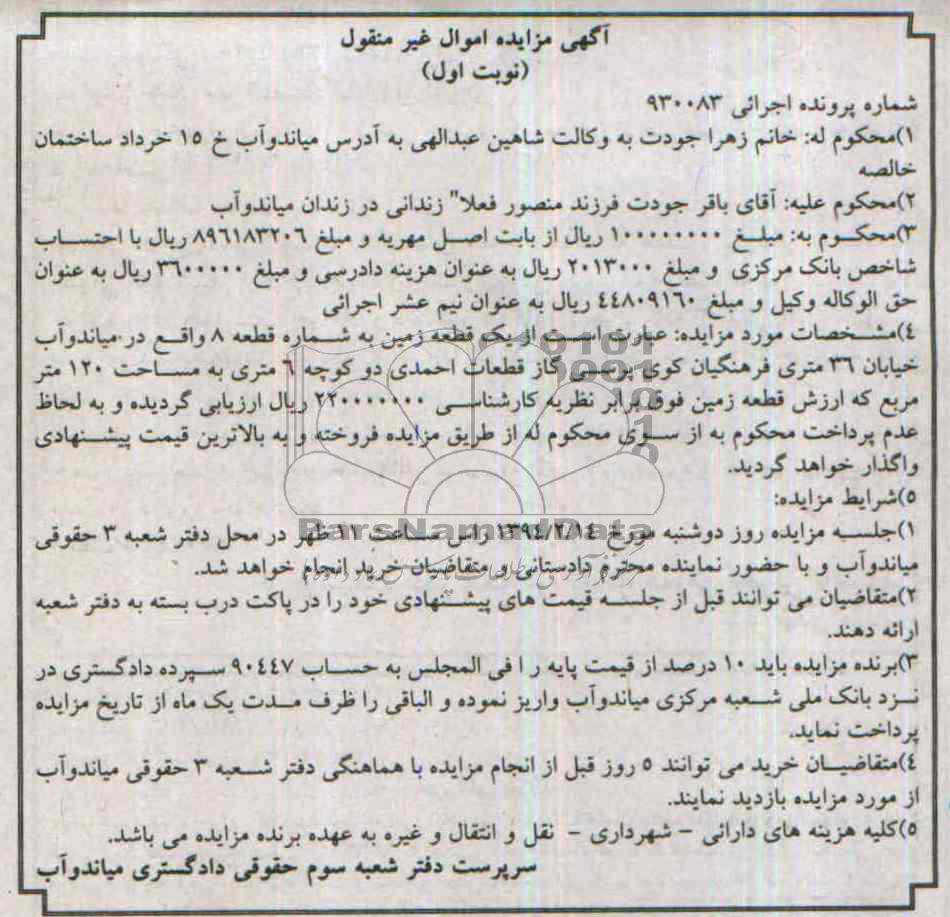 آگهی مزایده اموال غیر منقول
(نوبت اول)
شماره پرونده اجرائی ۹۳۰۰۸۳
۱)محکوم له: خانم زهرا جودت به وکالت شاهین عبدالهی به آدرس میاندوآب خ ۱۵ خرداد ساختمان
خالصه
۲)محکوم علیه: آقای باقر جودت فرزند منصور فعلا" زندانی در زندان میاندوآب
۳)محکوم به: مبلغ ۱۰۰۰۰۰۰۰۰ ریال از بابت اصل مهریه و مبلغ ۸۹۶۱۸۳۲۰۶ ریال با احتساب
شاخص بانک مرکزی و مبلغ ۲۰۱۳۰۰۰ ریال به عنوان هزینه دادرسی و مبلغ ۳۶۰۰۰۰۰ ریال به عنوان
حق الوکاله وکیل و مبلغ ۴۴۸۰۹۱۶۰ ریال به عنوان نیم عشر اجرائی
۴)مشخصات مورد مزایده: عبارت است از یک قطعه زمین به شماره قطعه ۸ واقع در میاندوآب
خیابان ۳۶ متری فرهنگیان کوی بوسی گاز قطعات احمدی دو کوچه ۶ متری به مساحت ۱۲۰ متر
مربع که ارزش قطعه زمین فوق برابر نظریه کارشناسی ۲۲۰۰۰۰۰۰۰ ریال ارزیابی گردیده و به لحاظ
عدم پرداخت محکوم به از سوی محکوم له از طریق مزایده فروخته و به بالاترین قیمت پیشنهادی
واگذار خواهد گردید.
۵)شرایط مزایده:
۱)جلسه مزایده روز دوشنبه مورخ ۱۳۹۴/۲/۱۴ راس ساعت ۱۲ ظهر در محل دفتر شعبه ۳ حقوقی
میاندوآب و با حضور نماینده محترم دادستانی و متقاضیان خرید انجام خواهد شد.
۲)متقاضیان می توانند قبل از جلسه قیمت های پیشنهادی خود را در پاکت درب بسته به دفتر شعبه
ارائه دهند.
۳)برنده مزایده باید ۱۰ درصد از قیمت پایه را فی المجلس به حساب ۹۰۴۴۷ سپرده دادگستری در
نزد بانک ملی شعبه مرکزی میاندوآب واریز نموده و الباقی را ظرف مدت یک ماه از تاریخ مزایده
پرداخت نماید.
۴)متقاضیان خرید می توانند ۵ روز قبل از انجام مزایده با هماهنگی دفتر شعبه ۳ حقوقی میاندوآب
از مورد مزایده بازدید نمایند.
۵)کلیه هزینه های دارائی - شهرداری - نقل و انتقال و غیره به عهده برنده مزایده می باشد.
سرپرست دفتر شعبه سوم حقوقی دادگستری میاندوآب
ParsNamaData